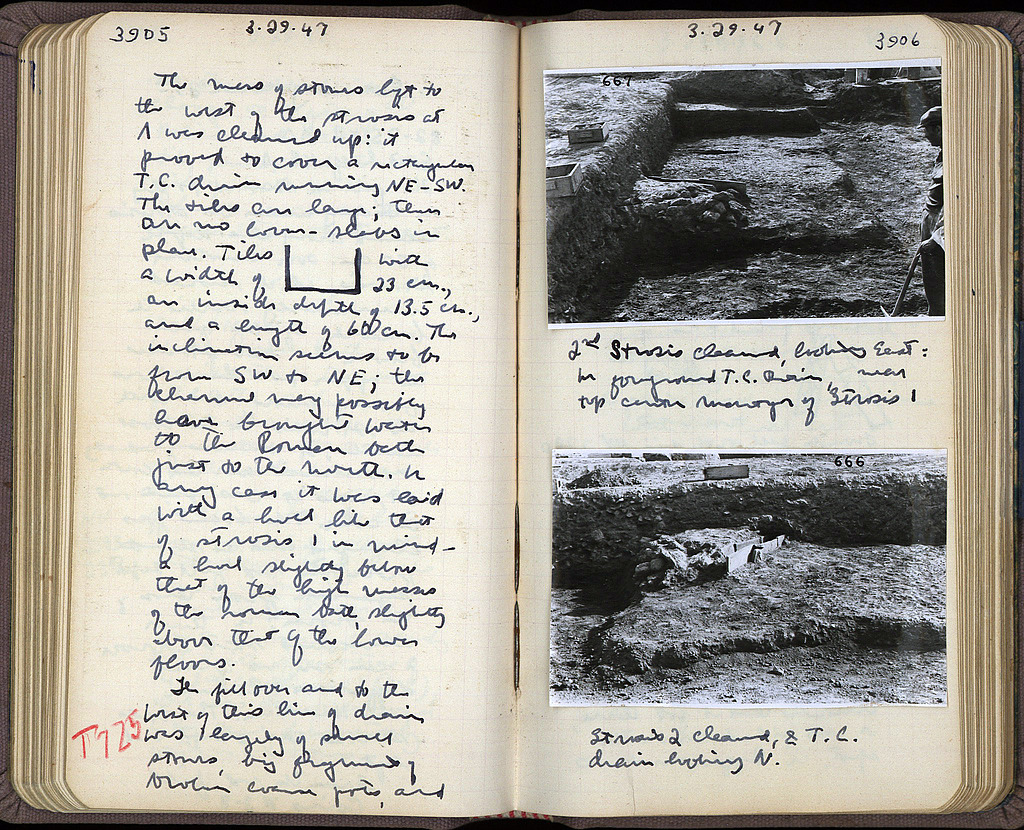 3905
3.29.47
The mass of stones left to
the west of the strosis at
1 was cleaned up: it
proved to cover a rectangular
T.C. drain running NE-SW.
The tiles are large; there
are no cover-slabs in
place. Tiles with
a width of 23 cm.,
an inside depth of 13.5 cm.,
and a length of 60 cm. The
inclination seems to be
from SW to NE; the
channel may possibly
have brought water
to the Roman bath
just to the north. In
any case it was laid
with a level like that
of strosis 1 in mind –
a level slightly below
that of the high masses
of the Roman bath, slightly
above that of the lower
floors.
The fill over and to the
west of this line of drain
was largely of small
stones, big fragments of
broken coarse pots, and
T725
3.29.47
3906
667
2nd Strosis cleaned, looking East:
in foreground T.C. Drain, near
top center remnant of Strosis 1
666
Strosis 2 cleaned, & T.C.
drain looking N.